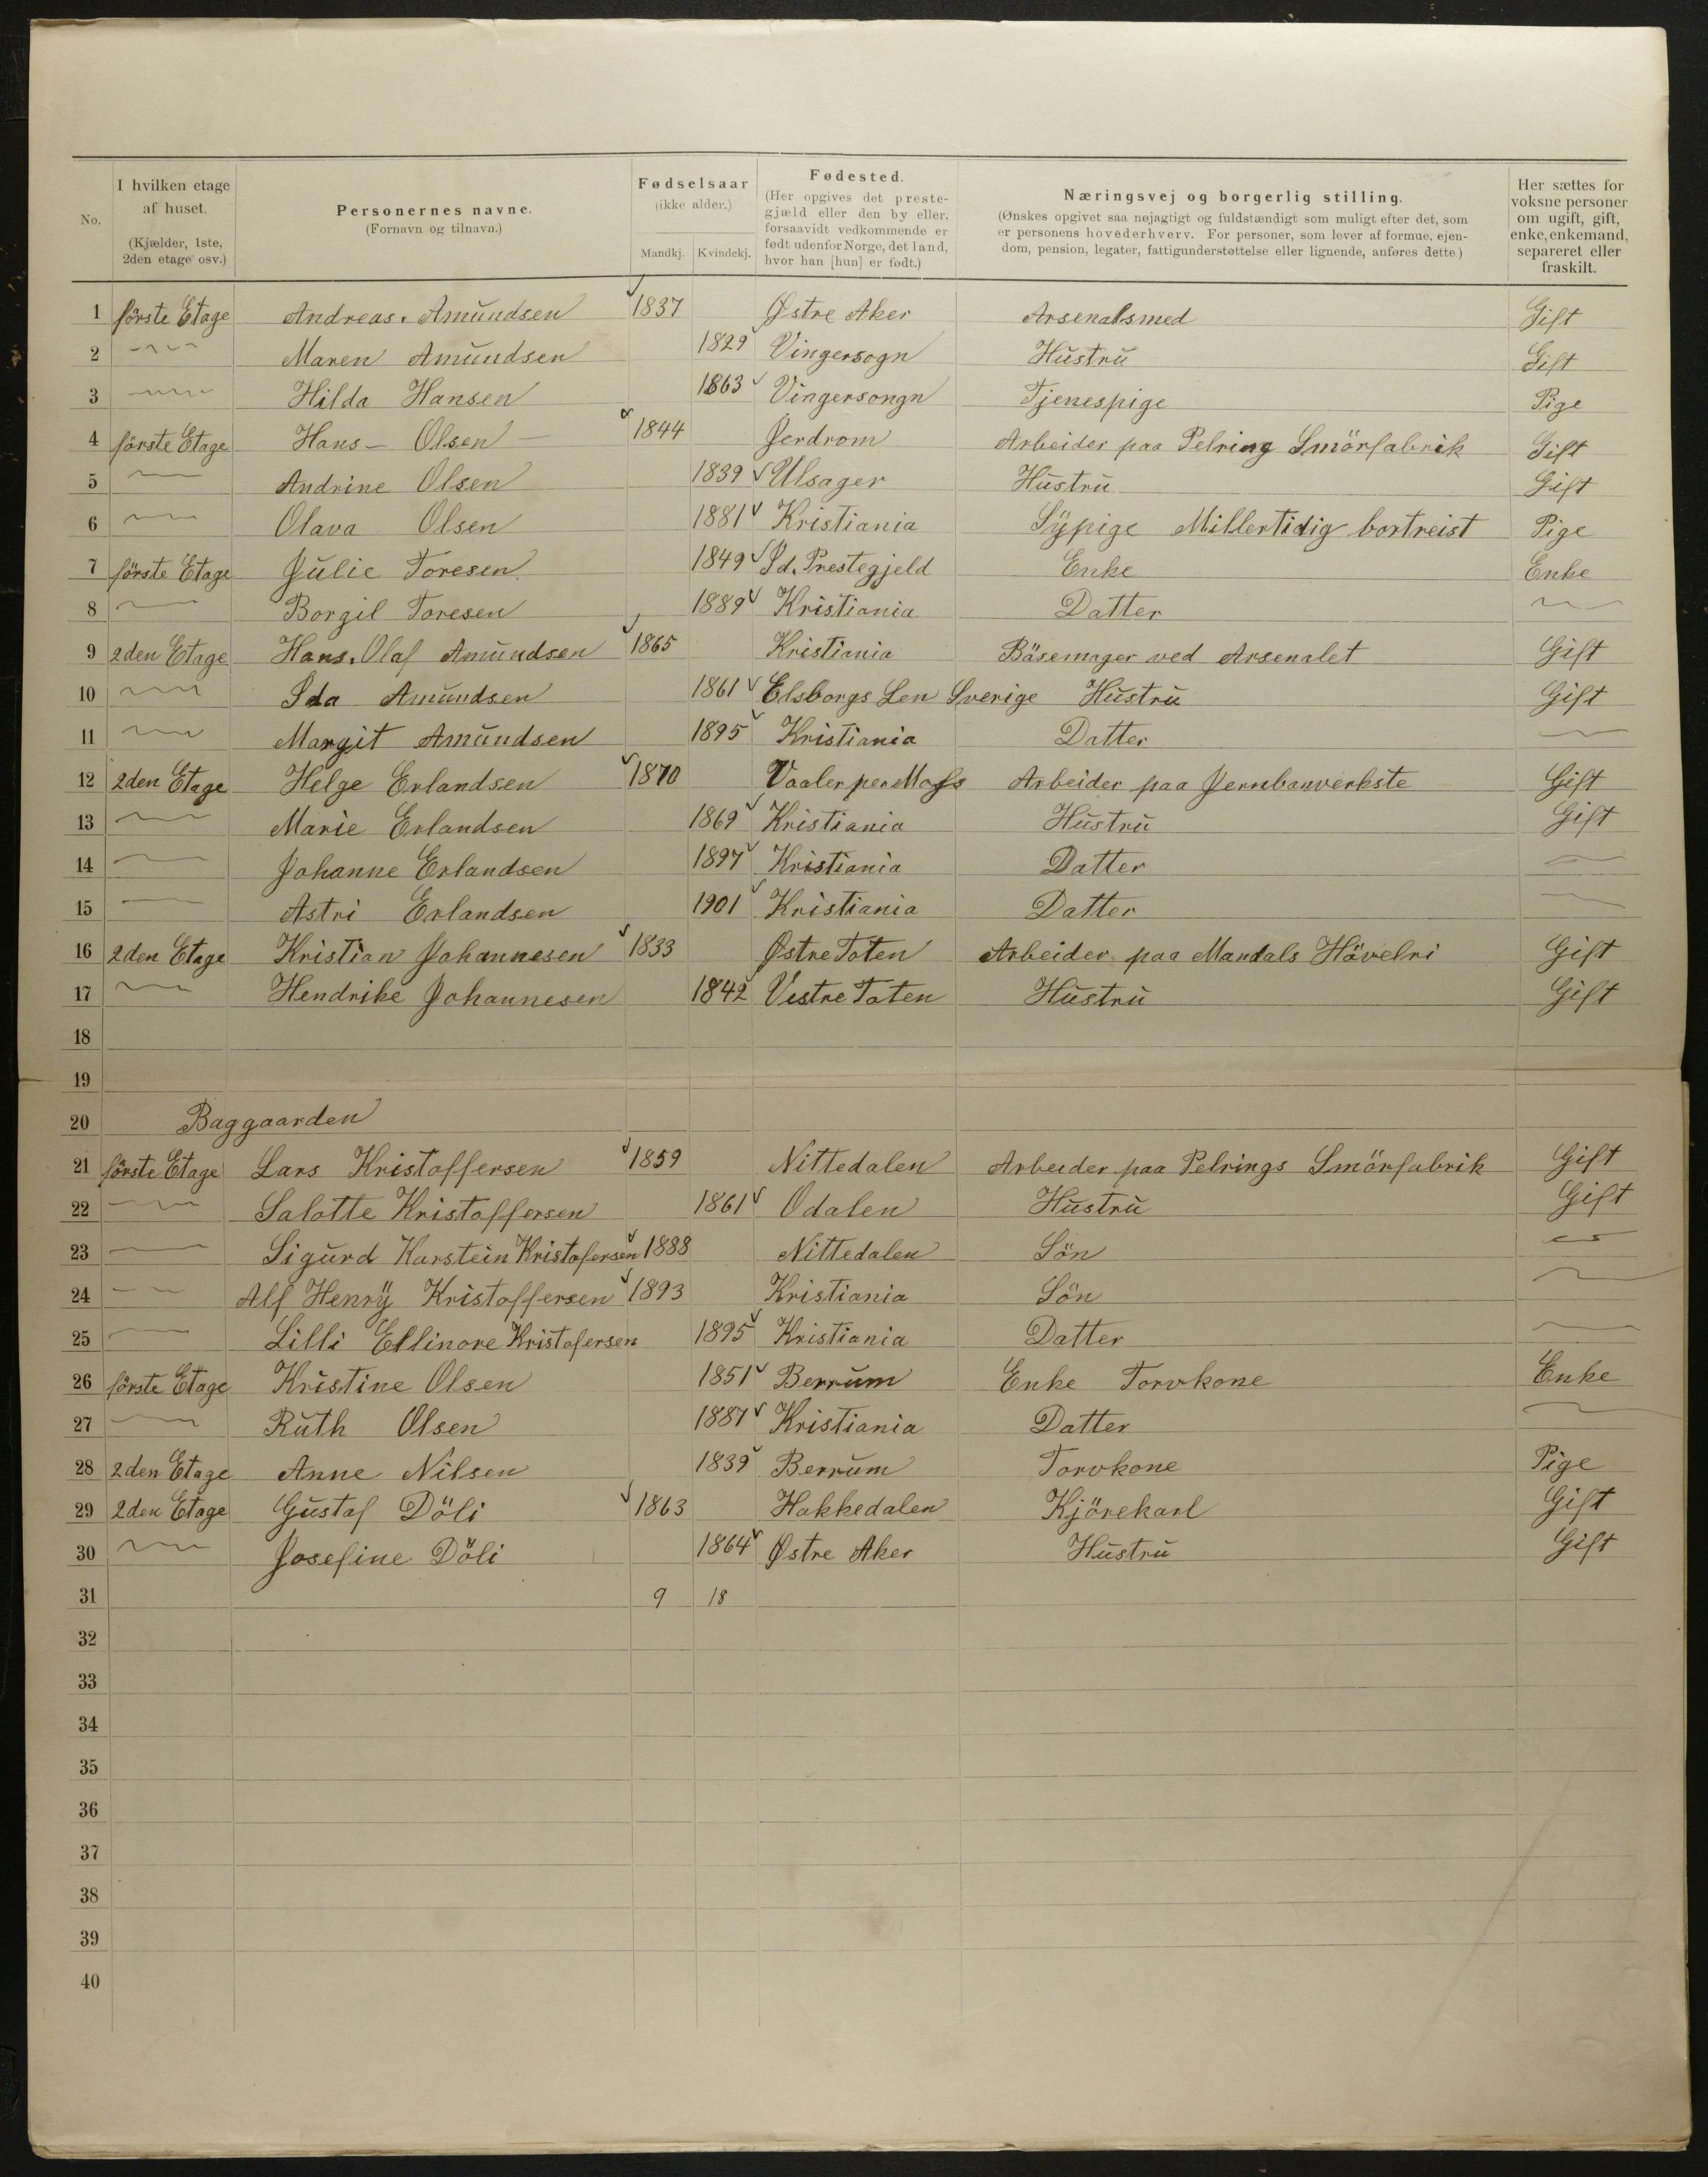 No.
I hvilken etage af huset. (Kjælder, 1ste, 2den etage osv.)
Personernes navne. (Fornavn og tilnavn.)
Fødselsaar (ikke alder.) Mandkj. Kvindekj.
Fødested. (Her opgives det prestegjæld eller den by eller, forsaavidt vedkommende er født udenfor Norge, det land, hvor han [hun] er født.)
Næringsvej og borgerlig stilling. (Ønskes opgivet saa nøjagtigt og fuldstændigt som muligt efter det, som er personens hovederhverv. For personer, som lever af formue, ejendom, pension, legater, fattigunderstøttelse eller lignende, anføres dette.)
Her sættes for voksne personer om ugift, gift, enke, enkemand, separeret eller fraskilt.
1 förste Etage Andreas. Amundsen 1837 Østre Aker Arsenalsmed Gift
2 Maren Amundsen 1829 Vingersogn Hustru Gift
3 Hilda Hansen 1863 Vingersongn Tjenespige Pige
4 förste Etage Hans - Olsen - 1844 Jerdrom Arbeider paa Pelring Smörfabrik Gift
5 Andrine Olsen 1839 Ulsager Hustru Gift
6 Olava Olsen 1881 Kristiania Sÿpige Millertidig bortreist Pige
7 förste Etage Julie Toresen 1849 Prestegjeld Enke Enke
8 Borgil Toresen 1889 Kristiania Datter
9 2den Etage Hans. Olaf Amundsen 1865 Kristiania Bäsemager ved Arsenalet Gift
10 Ida Amundsen 1861 Elsborgs Len Sverige Hustru Gift
11 Margit Amundsen 1895 Kristiania Datter
12 2den Etage Helge Erlandsen 1870 Vaaler per Moss Arbeider paa Jernbanverkste Gift
13 Marie Erlandsen 1869 Kristiania Hustru Gift
14 Johanne Erlandsen 1897 Kristiania Datter
15 Astri Erlandsen 1901 Kristiania Datter
16 2den Etage Kristian Johannesen 1833 Østre Toten Arbeider paa Mandals Hövelri Gift
17 Hendrike Johannesen 1842 Vestre Toten Hustru Gift
18
19
20 Baggaarden
21 förste Etage Lars Kristoffersen 1859 Nittedalen Arbeider paa Pelrings Smörfabrik Gift
22 Salotte Kristoffersen 1861 Odalen Hustru Gift
23 Sigurd Karstein Kristofersen 1888 Nittedalen Sön
24 Alf Henrÿ Kristoffersen 1893 Kristiania Sön
25 Lilli Ellinore Kristofersen 1895 Kristiania Datter
26 förste Etage Kristine Olsen 1851 Berrum Enke Torvkone Enke
27 Ruth Olsen 1887 Kristiania Datter
28 2den Etage Anne Nilsen 1839 Berrum Torvkone Pige
29 2den Etage Gustaf Döli 1863 Hakkedalen Kjörekarl Gift
30 Josefine Döli 1864 Østre Aker Hustru Gift
31 9 18
32
33
34
35
36
37
38
39
40